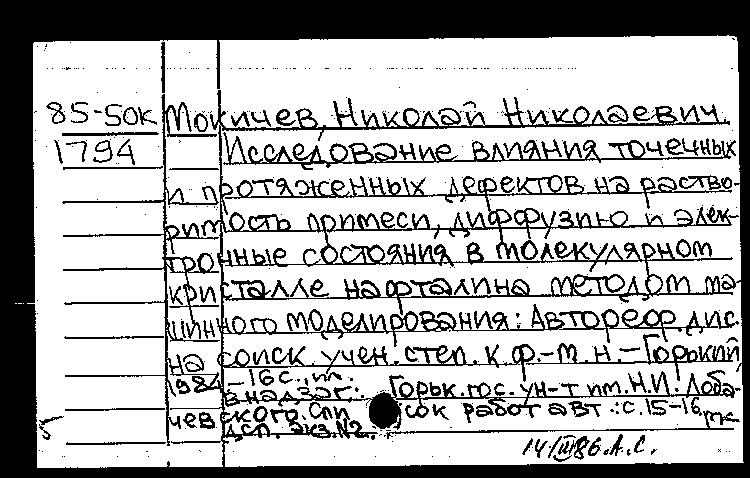 85-5ОК Мокичев, Николай Николаевич.
1794 Исследование влияния точечных
и протяженных дефектов на раство-
римость примеси, диффузию и элек-
тронные состояния в молекулярном
кристалле нафталина методом ма-
шинного моделирования: Автореф. дис.
на соиск. учен. степ. к.ф.-м.н. - Горький,
1984. - 16 с., ил.
В надзаг.: Горьк. гос. ун-т им. Н.И. Лоба-
чевского. Спи сок работ авт.: с. 15-16
дсп. Экз. №2.
5
14/III 86. А.С.